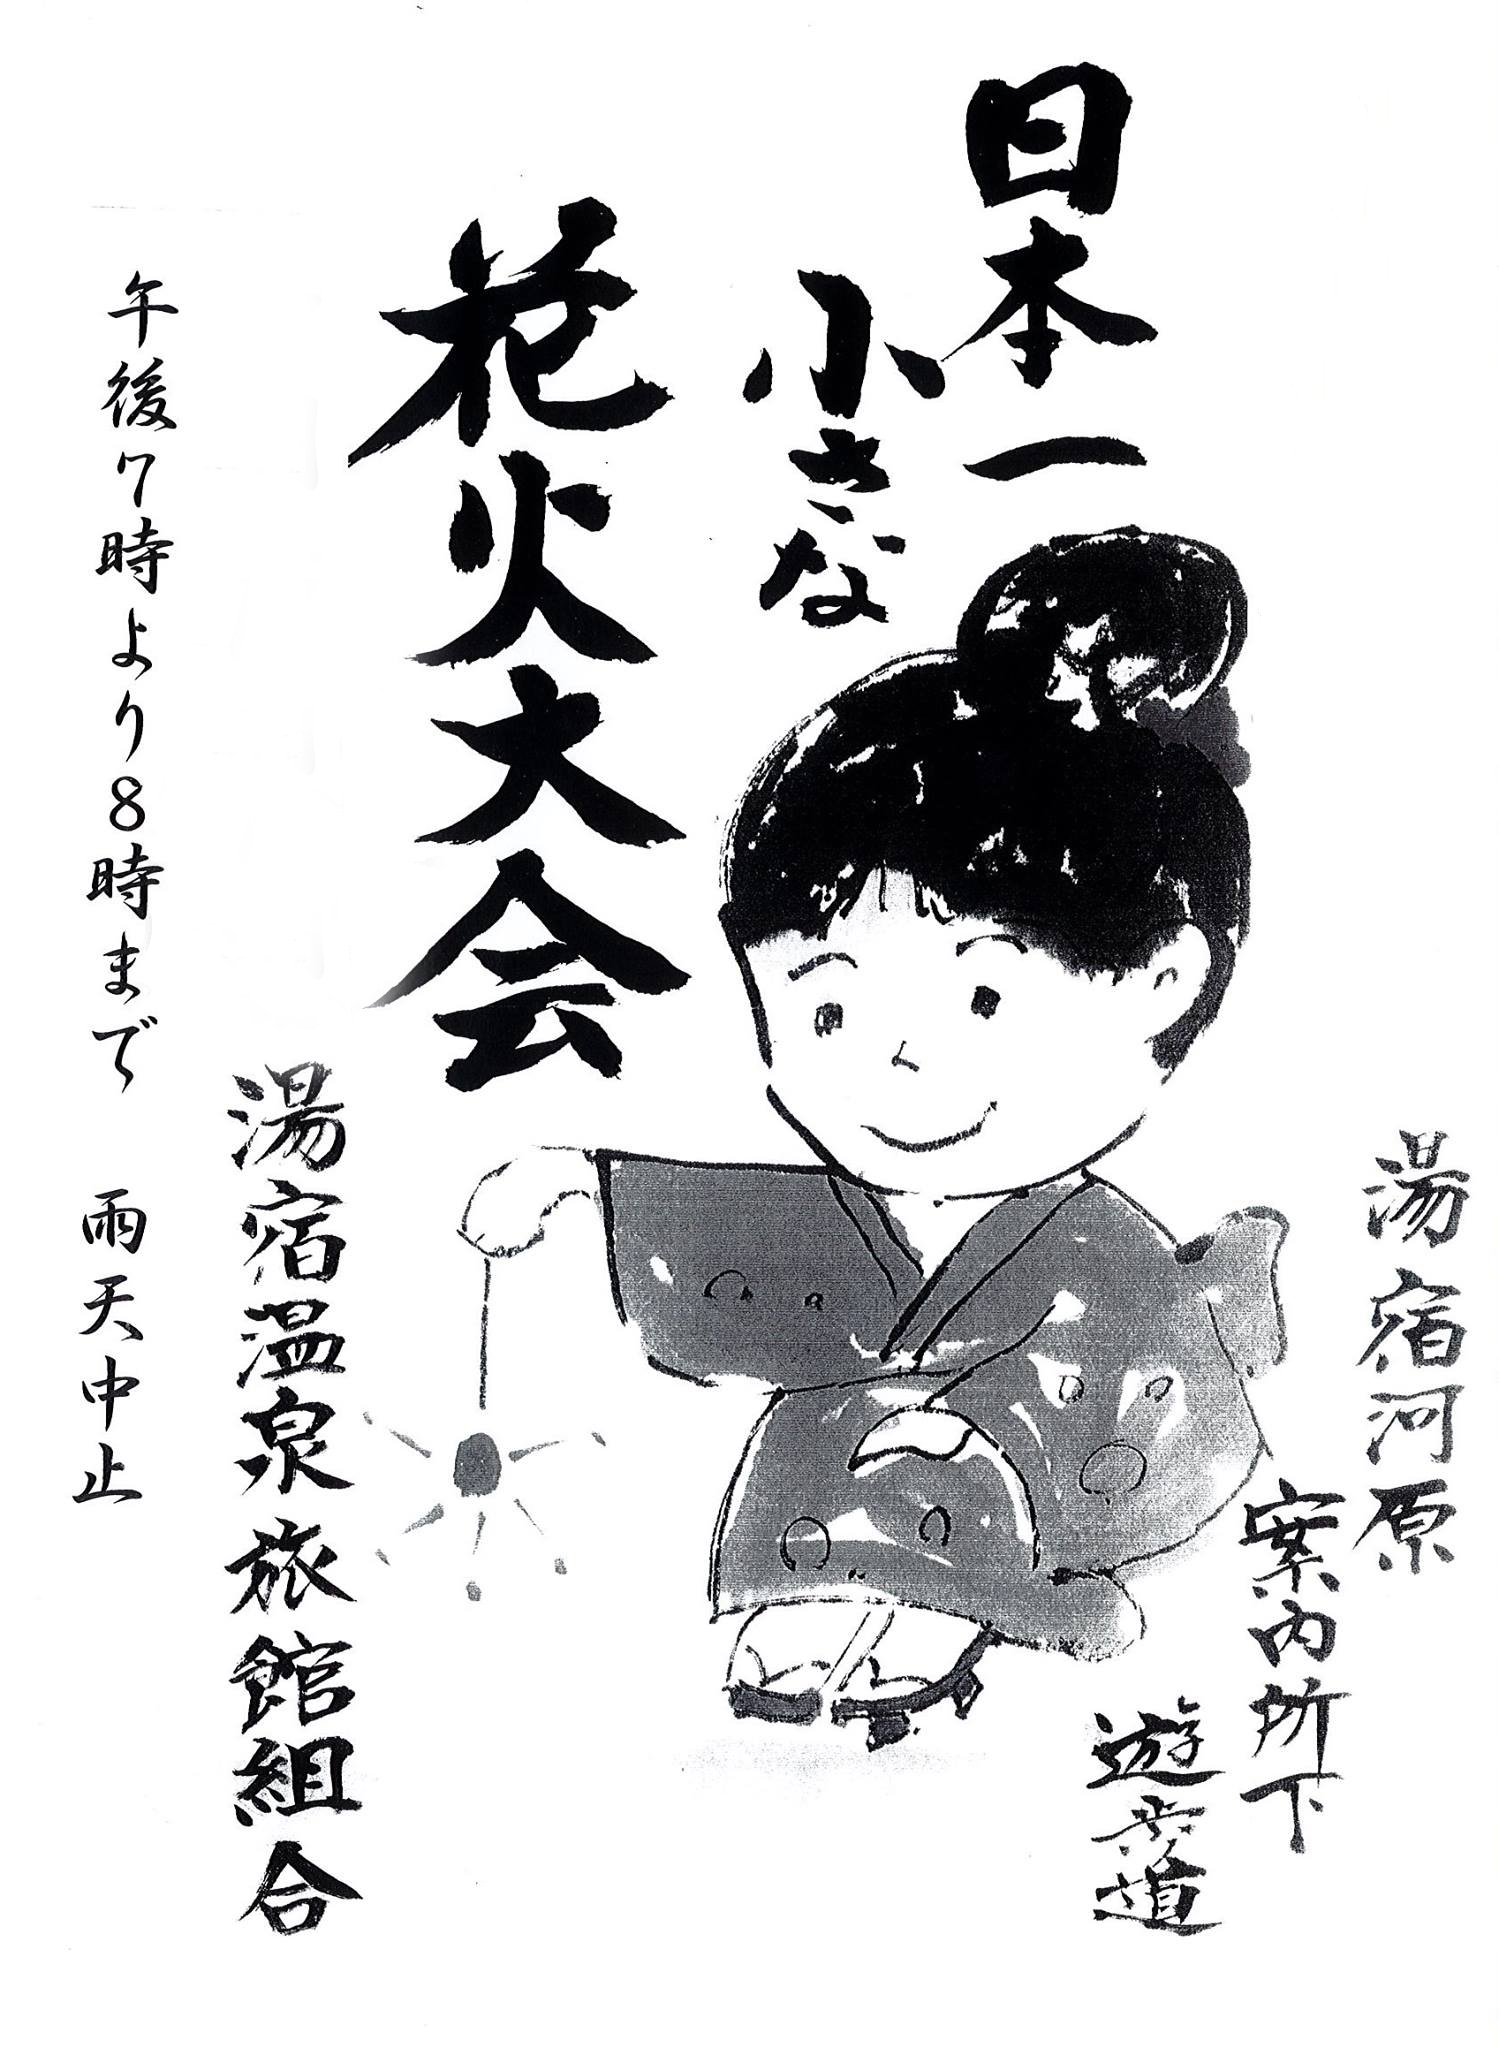 日本一
小さな
花火大会
湯宿河原
案内所下
遊歩道
湯宿温泉旅館組合
午後7時より8時まで 雨天中止